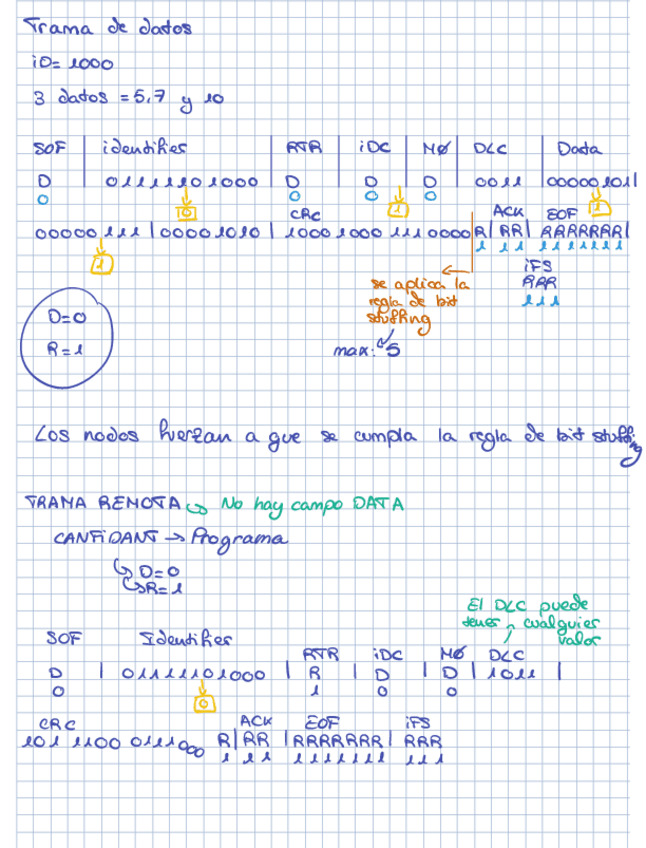 Trama de datos
iD= 1000
3 datos = 5,7 y 10
SOF | identifier | RTR | iDC | MØ | DLC | Data
D | 01111101000 | D | D | D | 0011 | 00000101|
0 0 0 0
0 1 1
00000111 | 00001010 | CRC 1000 1000 1110000 R| ACK RR| EOF RRRRRRR|
1 1 1 1111111
1
iFS
RRR
111
se aplica la
regla de bit
stuffing
max: 5
D=0
R=1
Los nodos fuerzan a que se cumpla la regla de bit stuffing
TRAMA REMOTA → No hay campo DATA
CANFIDANT → Programa
↳ D=0
↳ R=1
El DLC puede
tener cualquier
valor
SOF Identifier RTR iDC MØ DLC
D | 01111101000 | R | D | D | 1011 |
0 1 0 0
0
CRC ACK EOF iFS
101 1100 0111000 R| RR | RRRRRRR| RRR
1 1 1 1111111 111